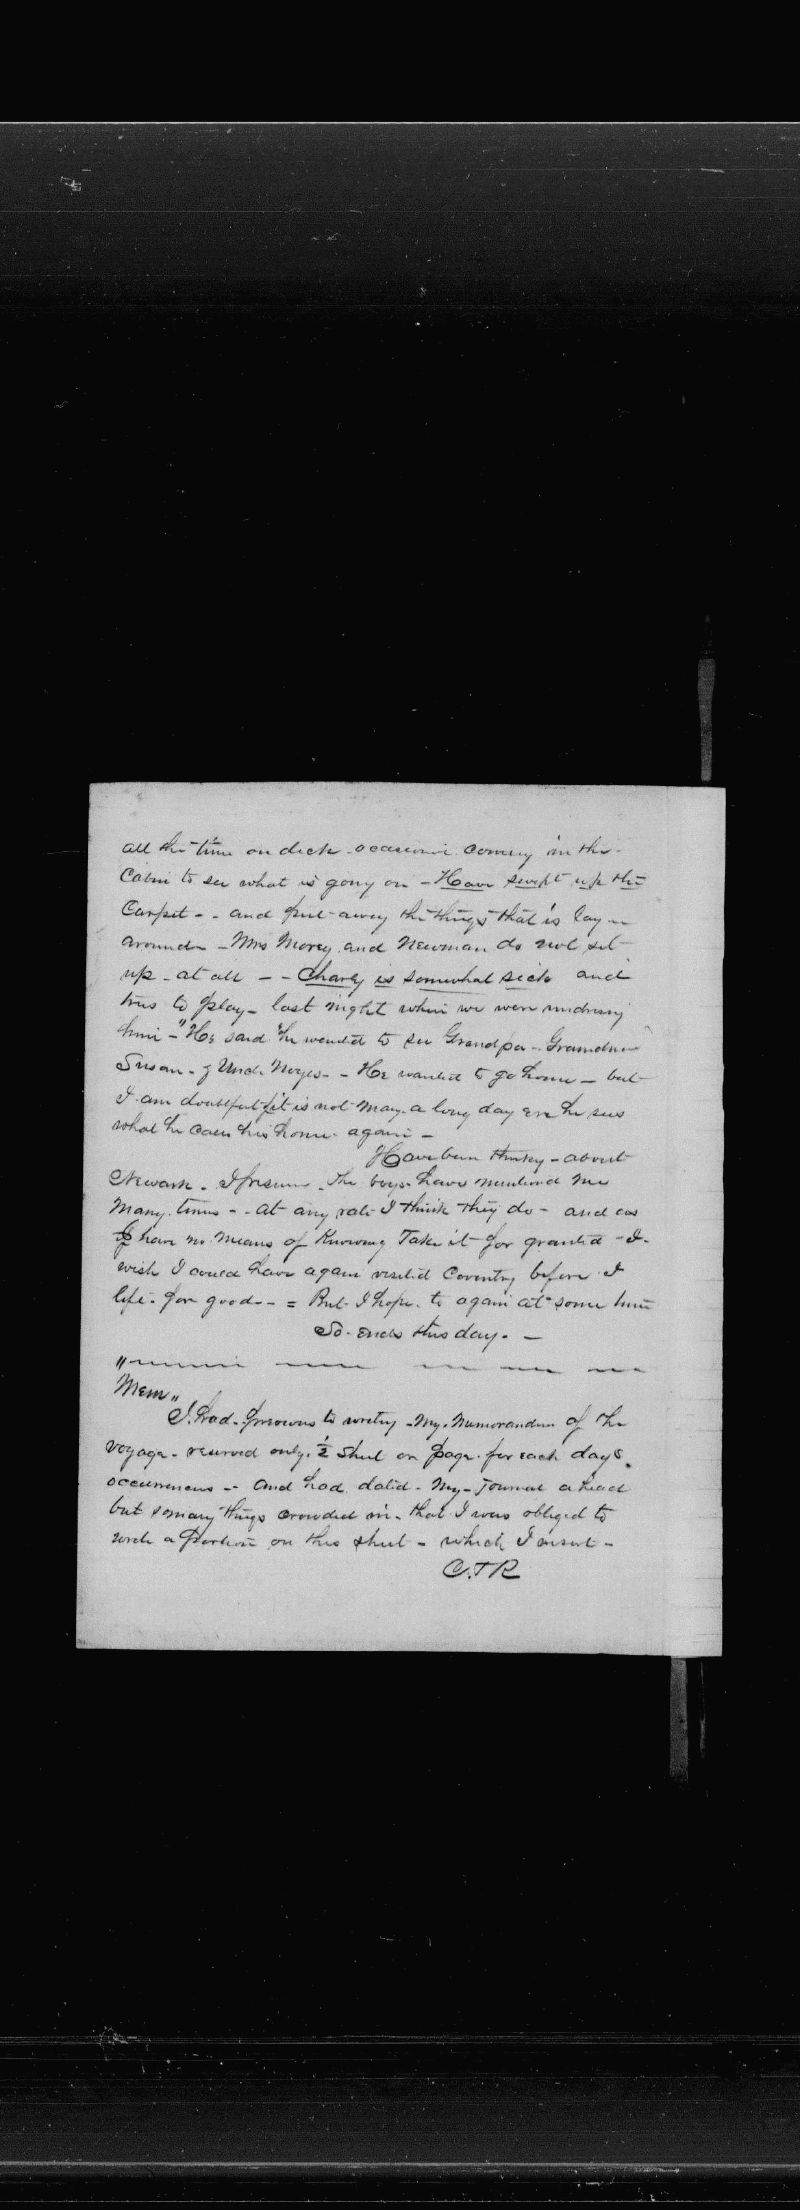 all the time on deck occasional coming in the
Cabin to see what is going on - Have swept up the
Carpet - - and put away the things that is layn
around - Mrs Morey and Newman do not set
up - at all - - Charly is somewhat sick and
tries to play - last night when we were undressing
him - "He said he wanted to see Grandpa - Grandma
Susan - & Uncle Noyes - - He wanted to go home - but
I am doubtful if it is not many a long day ere he sees
what he calls his home again -
Have been thinkg - about
Newark - I presume the boys have mentioned me
many times - - at any rate I think they do - and as
I have no means of Knowing Take it for granted - I
wish I could have again visited Coventry before I
left - for good - - = But I hope to again at some time
So ends this day. -
Mem "
I had previous to writing - My Memorandum of the
voyage - reserved only ½ Sheet or page for each days
occurrences - - and had dated - My - Journal ahead
but so many things crowded in - that I was obliged to
write a portion on this sheet - which I insert -
C.T.R